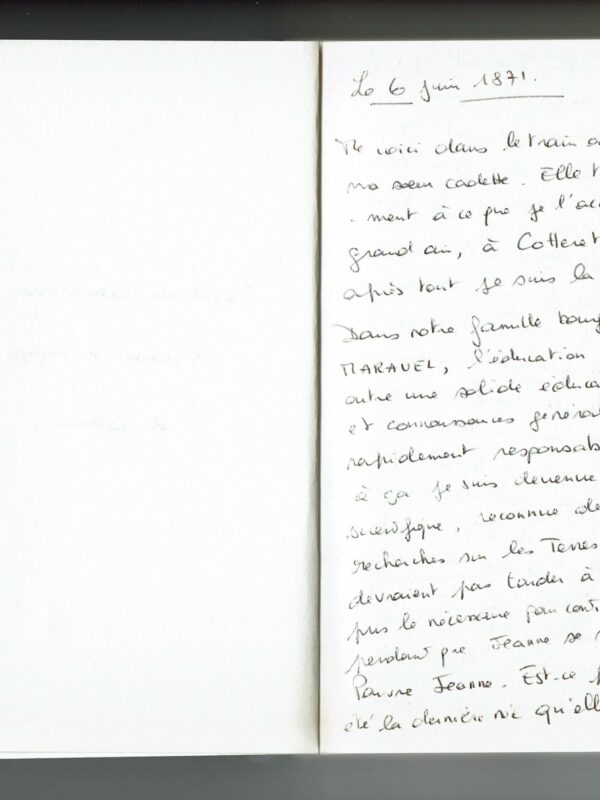 Le 6 juin 1871.
Me voici dans le train a
ma soeur cadette. Elle t
- ment à ce que je l'ac
grand air, à Cotteret
après tout je suis la
Dans notre famille bourg
MARAVEL, l'éducation
outre une solide éduca
et connaissances général
rapidement responsab
à ça je suis devenue
scientifique, reconnue de
recherches sur les Terres
devraient pas tarder à
pris le nécessaire pour cont
pendant que Jeanne se
Pauvre Jeanne. Est-ce p
été la dernière née qu'ell